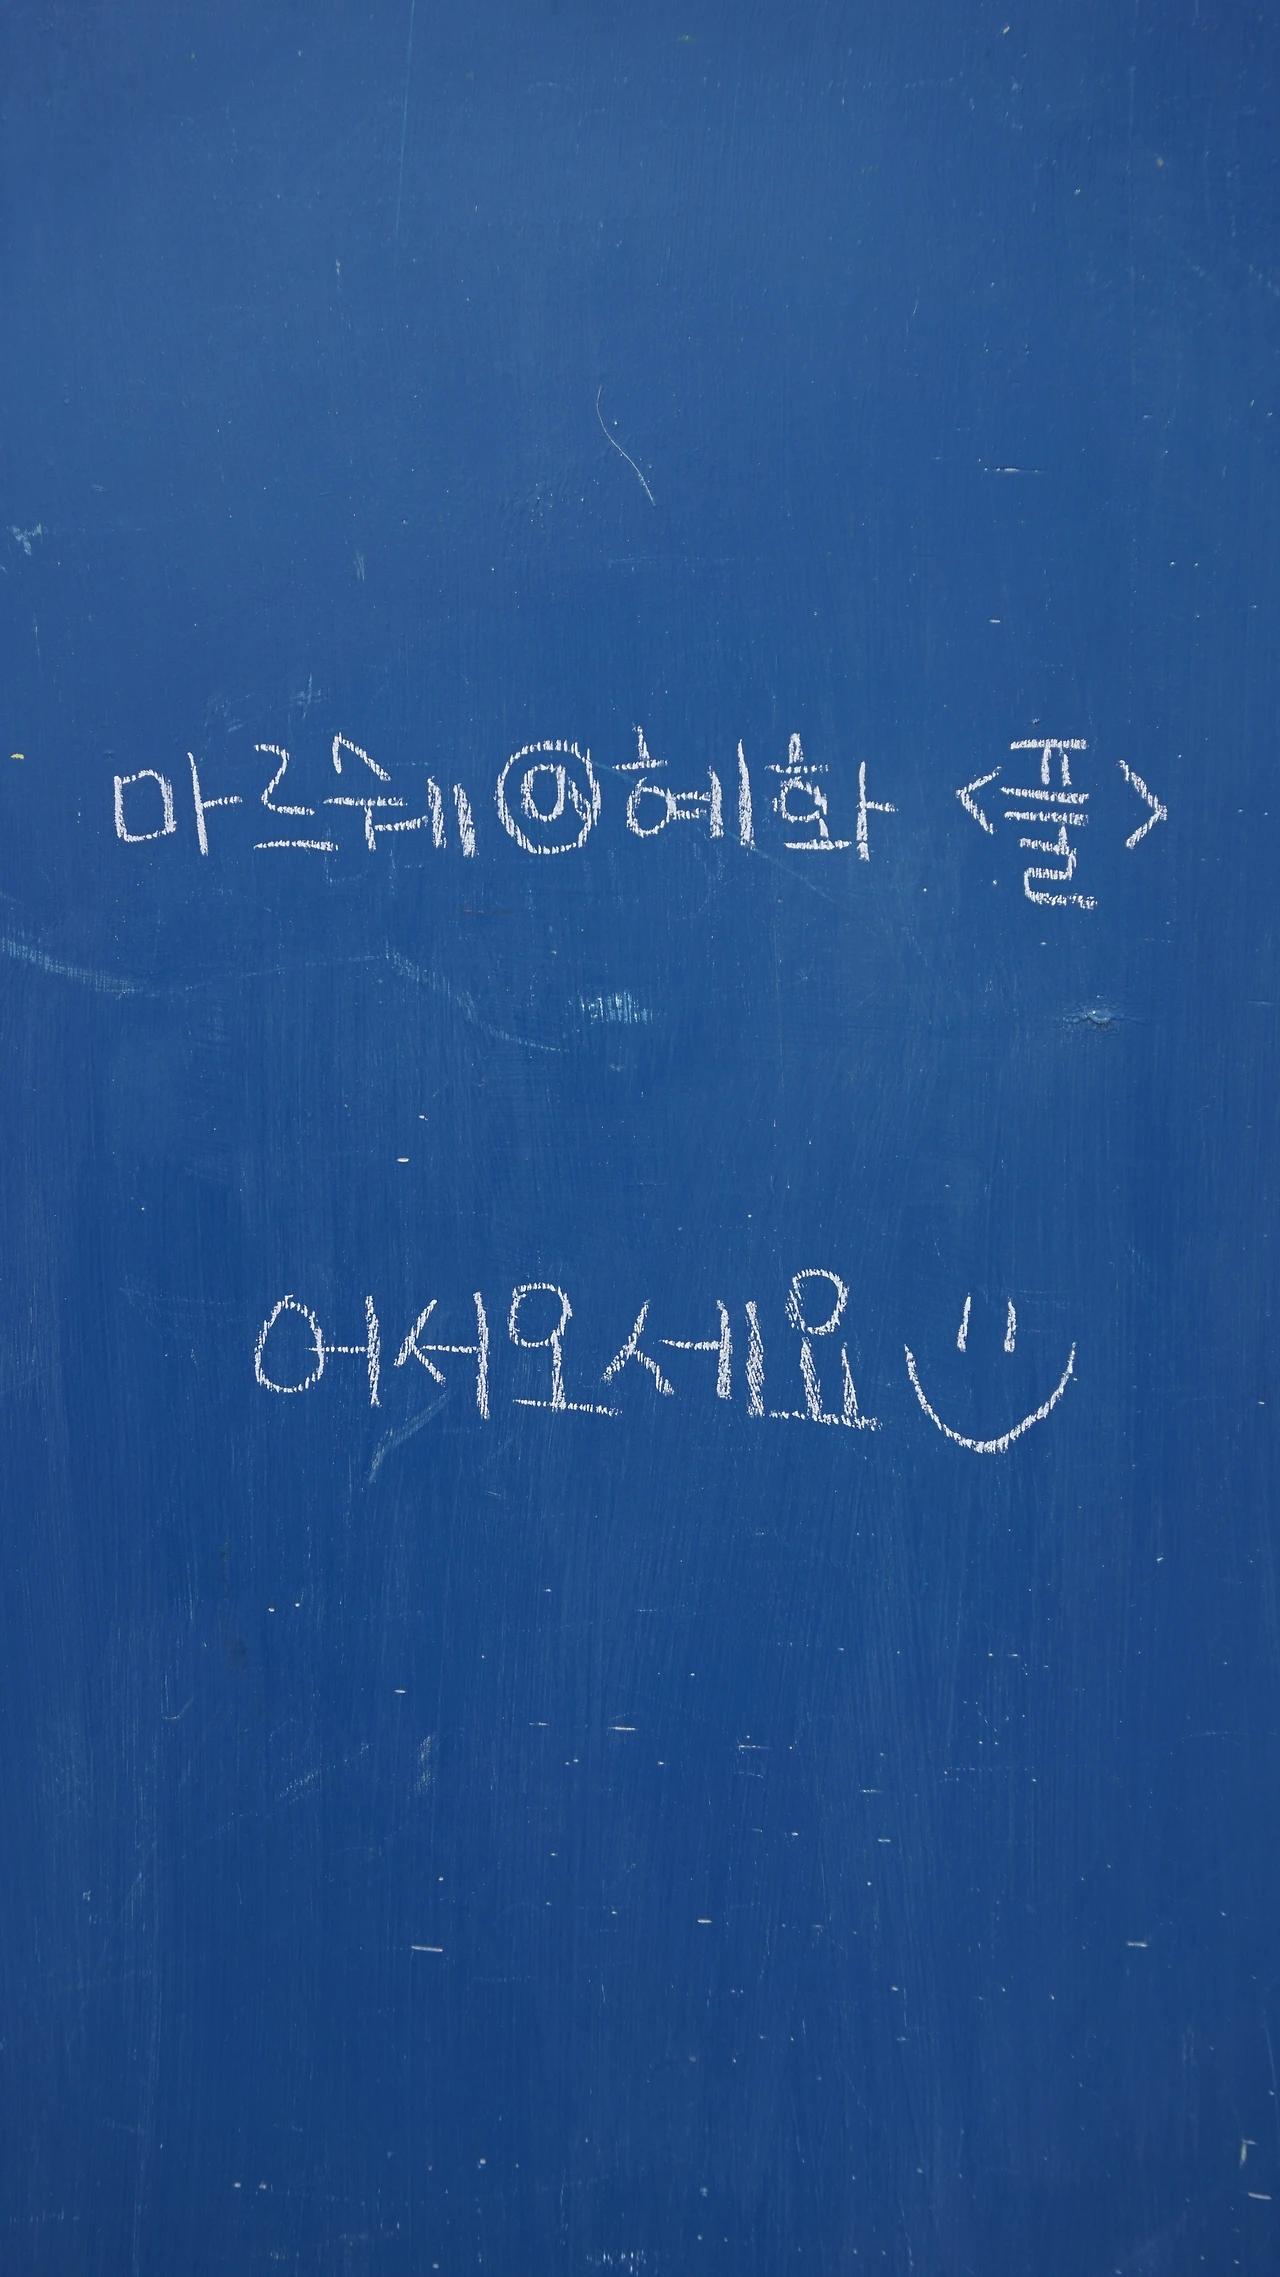 마르쉐@혜화 <풀>
어서오세요